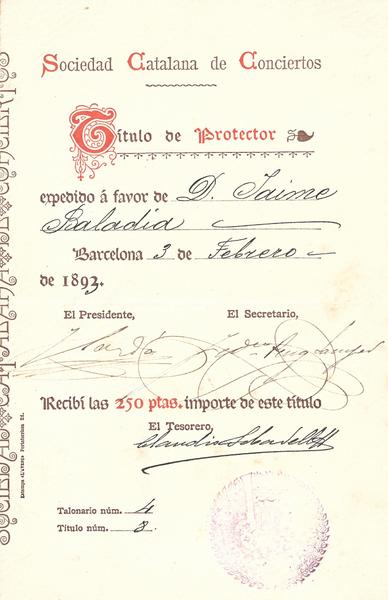 Sociedad Catalana de Conciertos
Título de Protector
expedido á favor de D. Jaime
Baladia
Barcelona 3 de Febrero
de 1893.
El Presidente, El Secretario,
Recibí las 250 ptas. importe de este título
El Tesorero,
Talonario núm. 4
Título núm. 8.
SOCIEDAD CATALANA DE CONCIERTOS